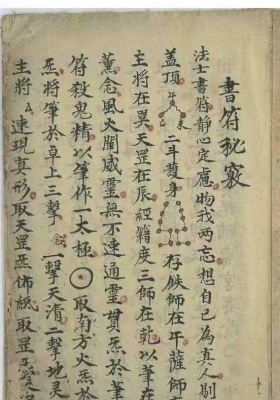 書符秘竅
法士書符靜心定慮物我两忘想自己為真人剔
蓋頂 未 二耳護身 存鉄師在午薩師
主將在巽天罡在辰經籍度三師在乾以筆在
薰念風火閬威靈無不速通靈貫炁於筆
符殺鬼精以筆作一太極 取南方火炁於
炁將筆於卓上三擊 一擊天清二擊地灵
主將 速現真形取天罡炁佈紙取罡